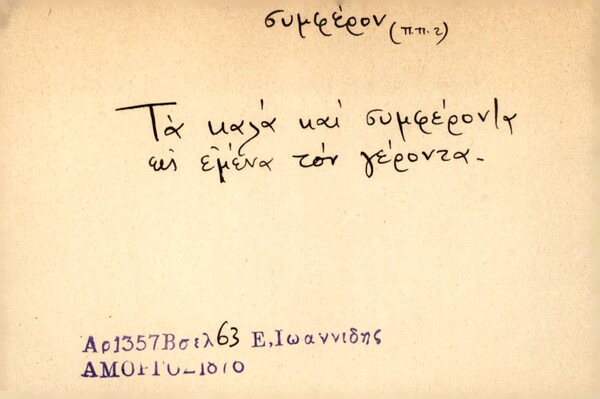 συμφέρον (π.π. 2)
Τὰ καλά καί συμφέροντα
εἰς ἐμένα τόν γέροντα.
Αρ1357Βσελ63 Ε,Ιωαννιδης
ΑΜΟΡΓΟΣ1876